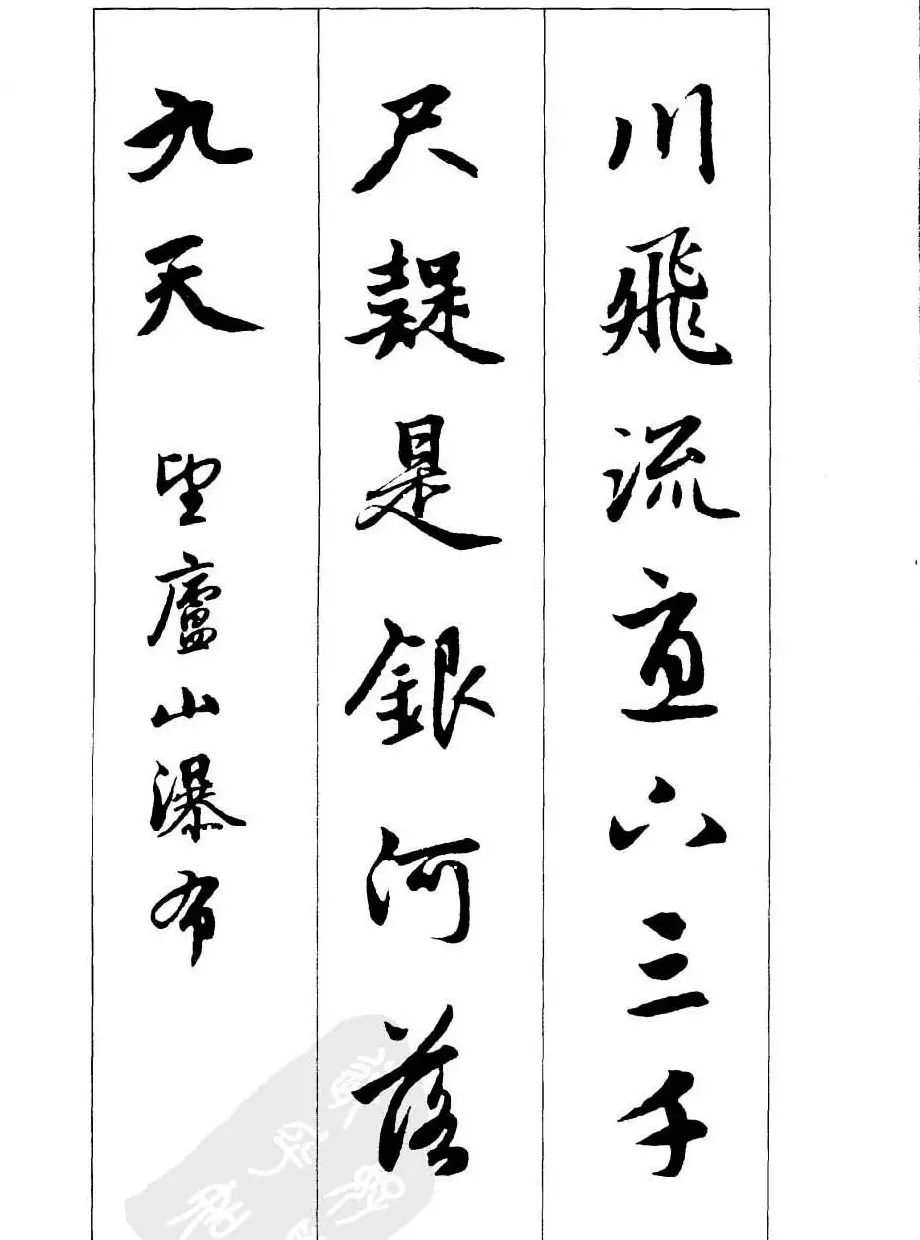 川飛流直下三千
尺疑是銀河落
九天 望廬山瀑布